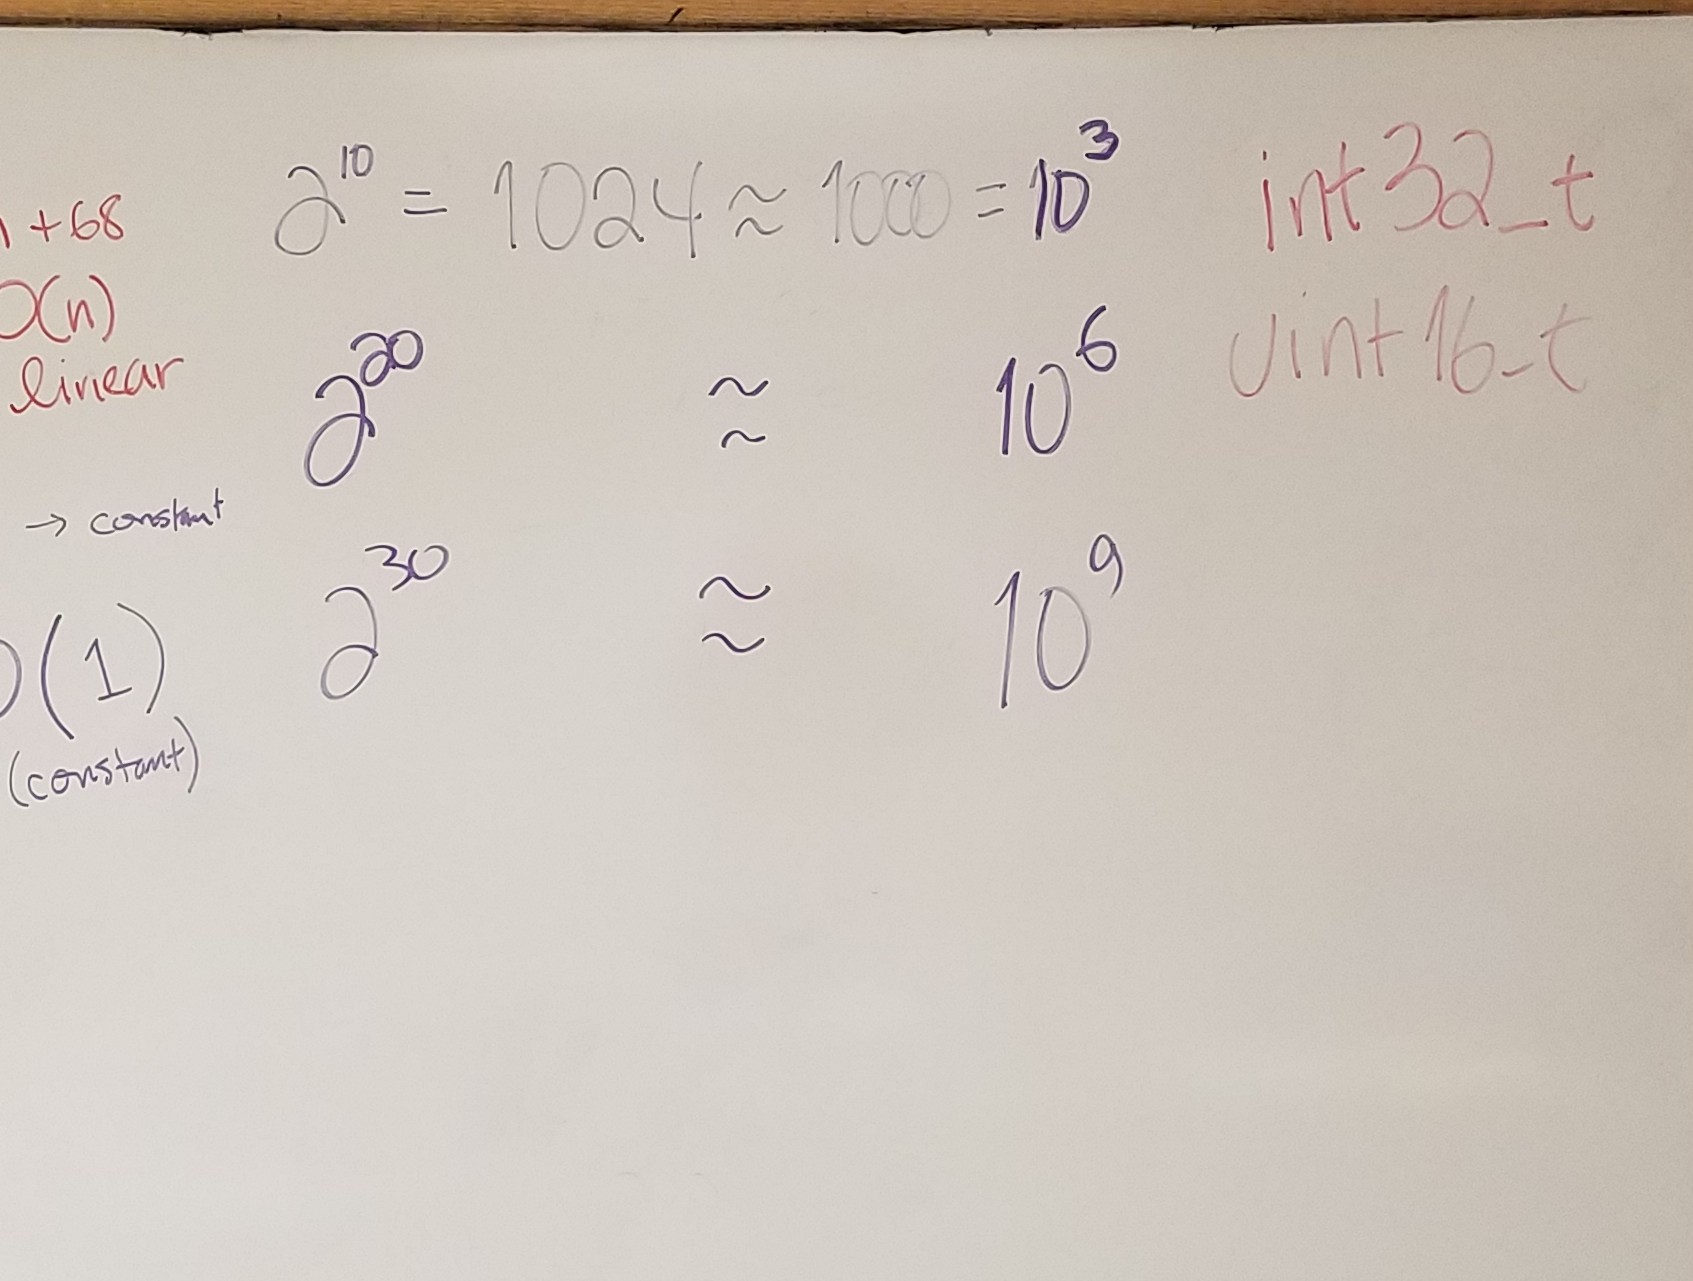 +68
O(n)
linear
→ constant
O(1)
(constant)
2^10 = 1024 ≈ 1000 = 10^3
2^20 ≈ 10^6
2^30 ≈ 10^9
int32_t
uint16_t